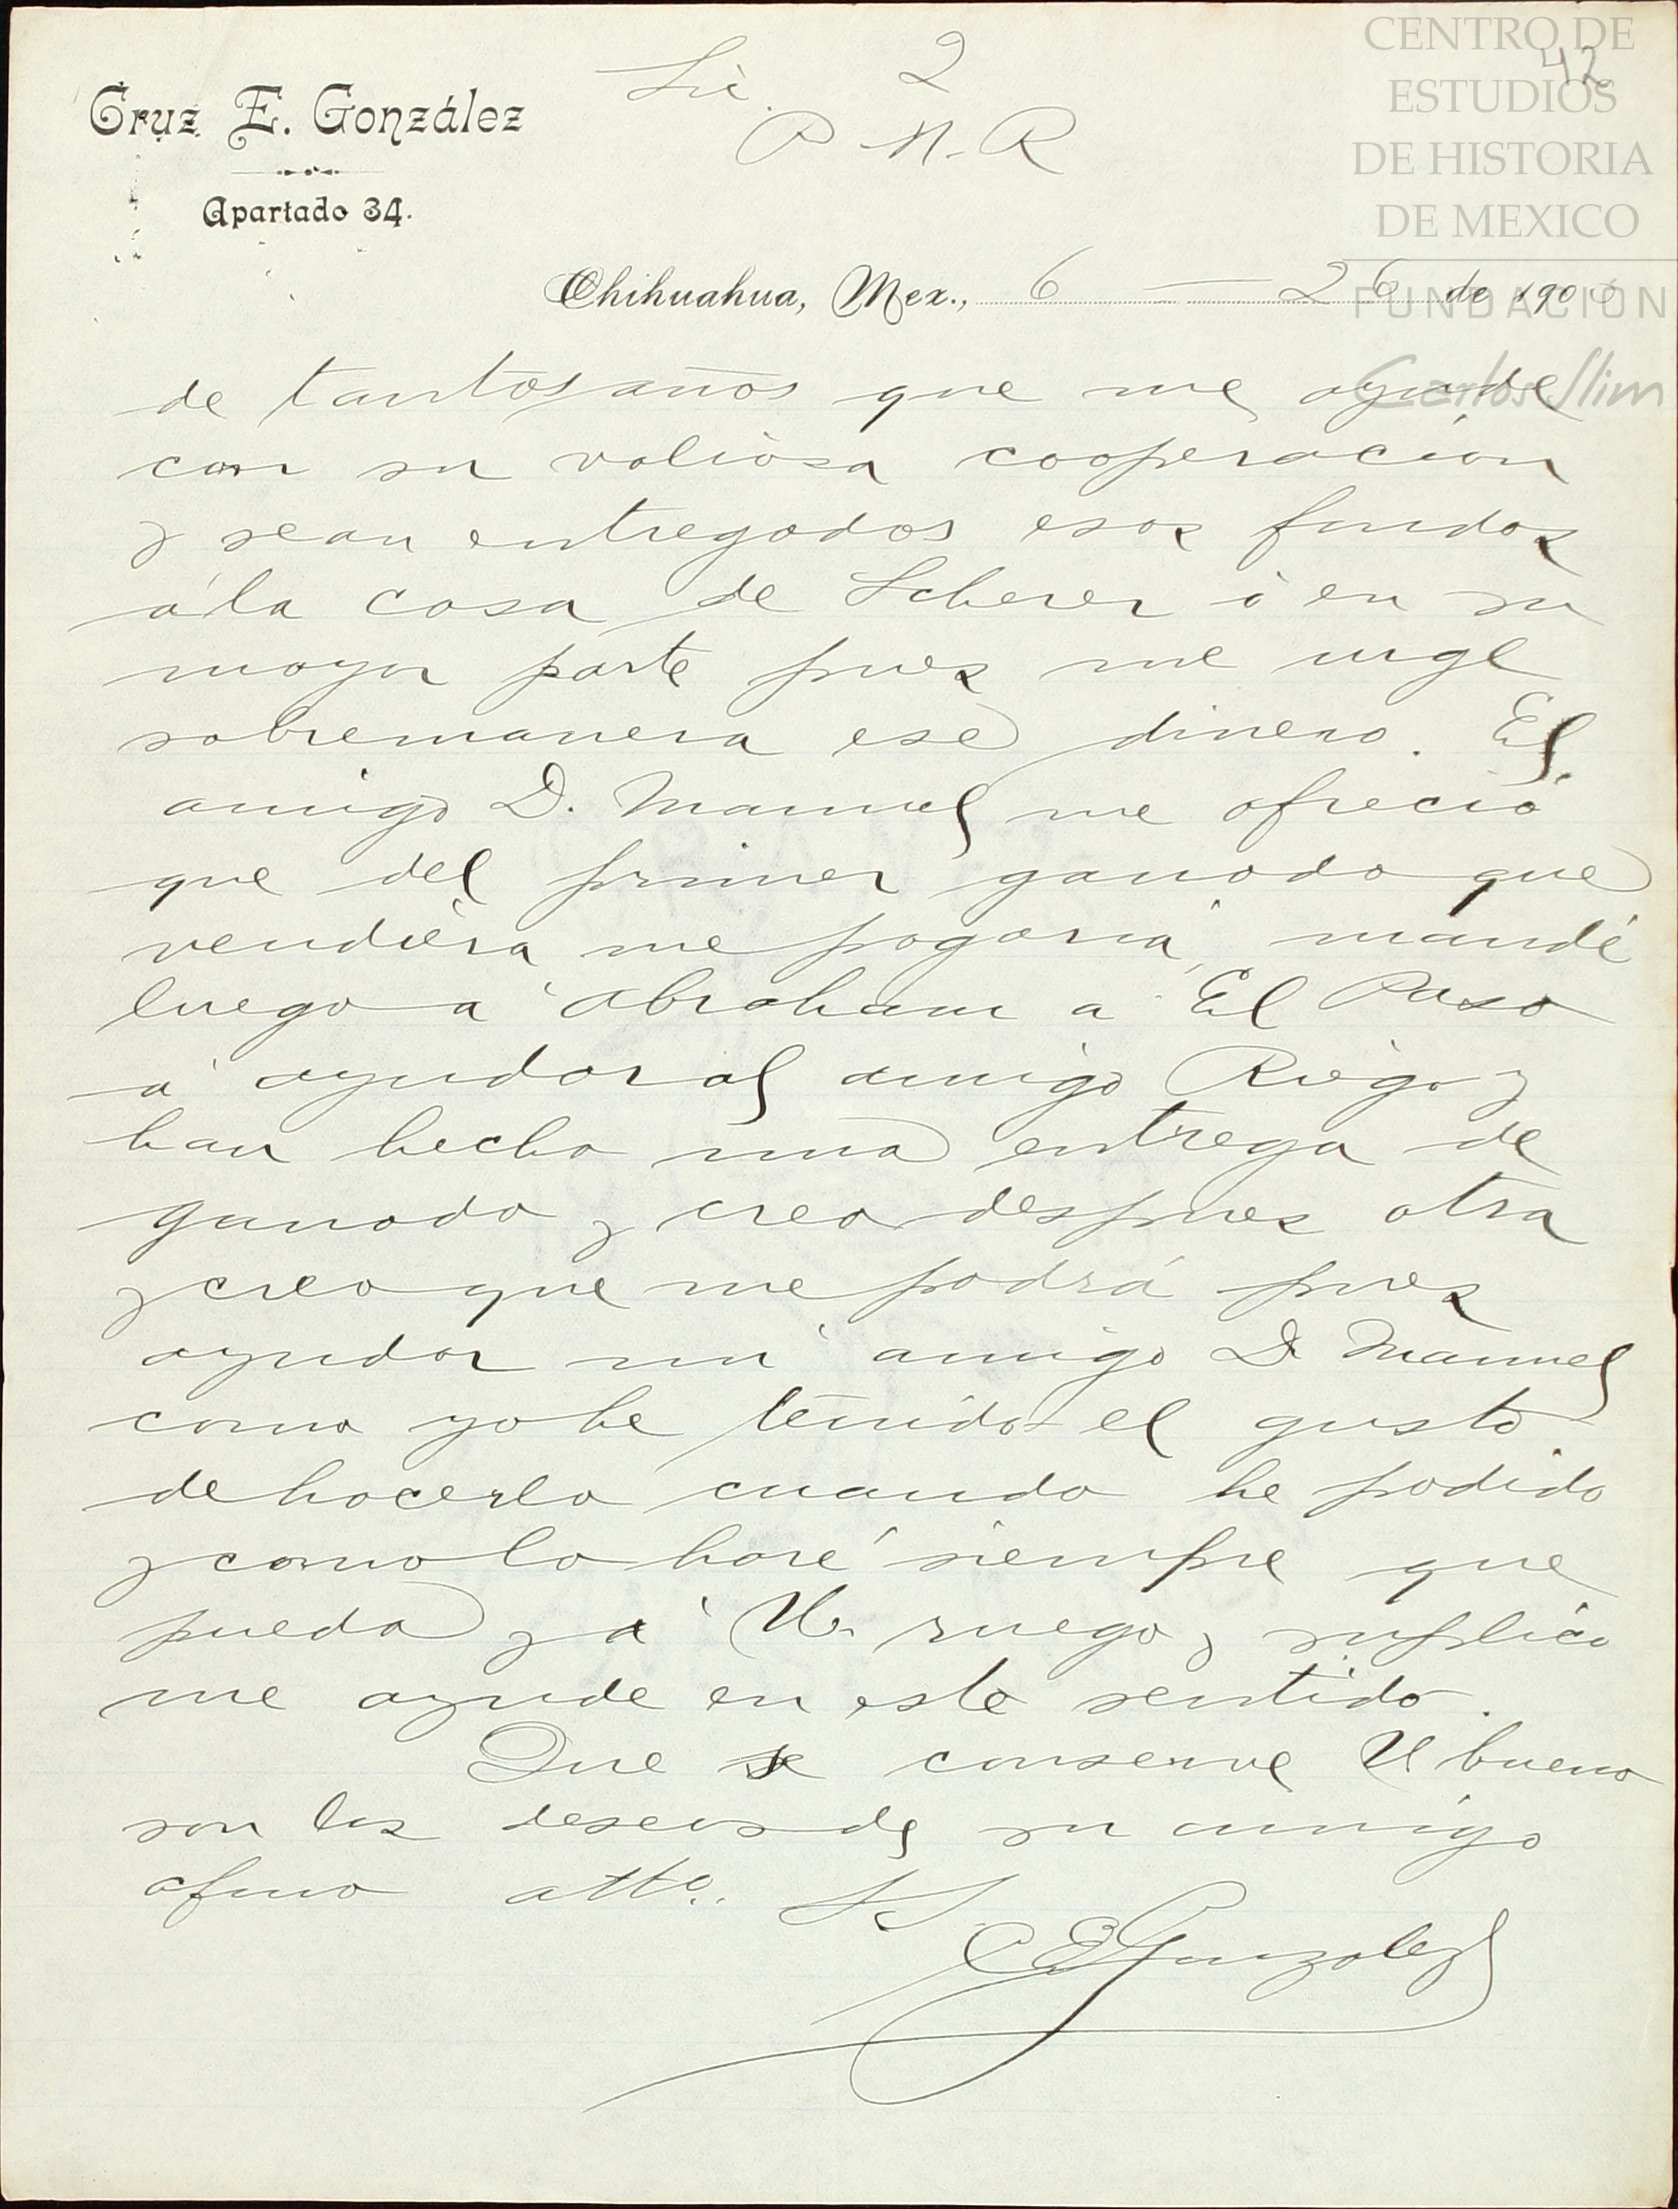 CENTRO DE
ESTUDIOS
DE HISTORIA
DE MEXICO
FUNDACION
Carlos Slim
42
Lic. 2
P N. R
Cruz E. González
Apartado 34.
Chihuahua, Mex., 6 — 26 de 190
de tantos años que me ayude
con su valiosa cooperación
y sean entregados esos fondos
á la casa de Scherer ó en su
mayor parte pues me urge
sobremanera ese dinero. El
amigo D. Manuel me ofreció
que del primer ganado que
vendiera me pagaría, mandé
luego a Abraham a El Paso
a ayudar al amigo Riego y
han hecho una entrega de
ganado y creo despues otra
y creo que me podrá pues
ayudar mi amigo D Manuel
como yo he tenido el gusto
de hacerlo cuando he podido
y como lo haré siempre que
pueda y a U. ruego y suplico
me ayude en este sentido.
Que se conserve U bueno
son los deseos de su amigo
afmo atto. SS
C E Gonzalez